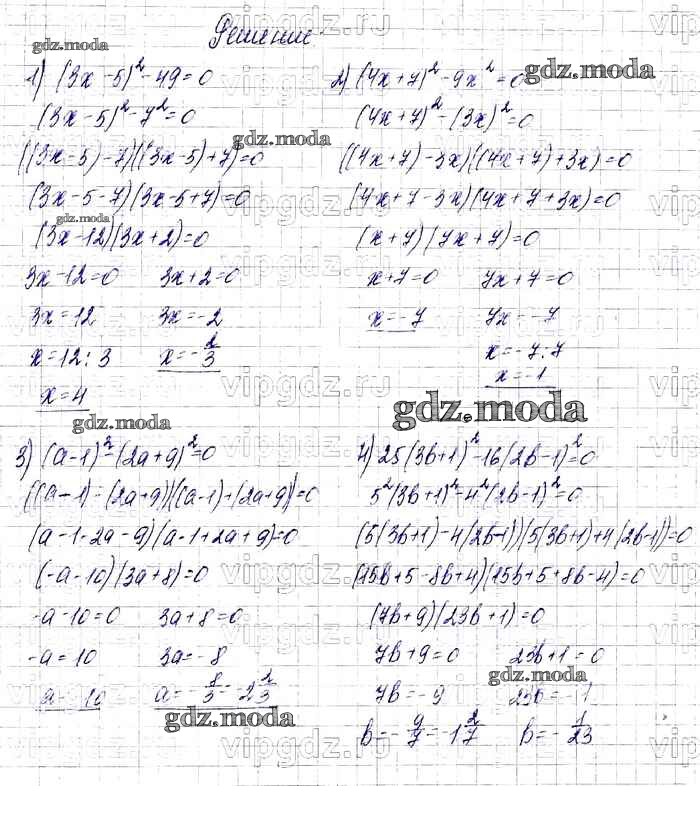 Решение
1) (3x-5)²-49=0
(3x-5)²-7²=0
((3x-5)-7)((3x-5)+7)=0
(3x-5-7)(3x-5+7)=0
(3x-12)(3x+2)=0
3x-12=0 3x+2=0
3x=12 3x=-2
x=12:3 x=-2/3
x=4
2) (4x+7)²-9x²=0
(4x+7)²-(3x)²=0
((4x+7)-3x)((4x+7)+3x)=0
(4x+7-3x)(4x+7+3x)=0
(x+7)(7x+7)=0
x+7=0 7x+7=0
x=-7 7x=-7
x=-7:7
x=-1
3) (a-1)²-(2a+9)²=0
((a-1)-(2a+9))((a-1)+(2a+9))=0
(a-1-2a-9)(a-1+2a+9)=0
(-a-10)(3a+8)=0
-a-10=0 3a+8=0
-a=10 3a=-8
a=-10 a=-8/3=-2 2/3
4) 25(3b+1)²-16(2b-1)²=0
5²(3b+1)²-4²(2b-1)²=0
(5(3b+1)-4(2b-1))(5(3b+1)+4(2b-1))=0
(15b+5-8b+4)(15b+5+8b-4)=0
(7b+9)(23b+1)=0
7b+9=0 23b+1=0
7b=-9 23b=-1
b=-9/7=-1 2/7 b=-1/23
gdz.moda
gdz.moda
gdz.moda
gdz.moda
gdz.moda
gdz.moda
gdz.moda
gdz.moda
vipgdz.ru
vipgdz.ru
vipgdz.ru
vipgdz.ru
vipgdz.ru
vipgdz.ru